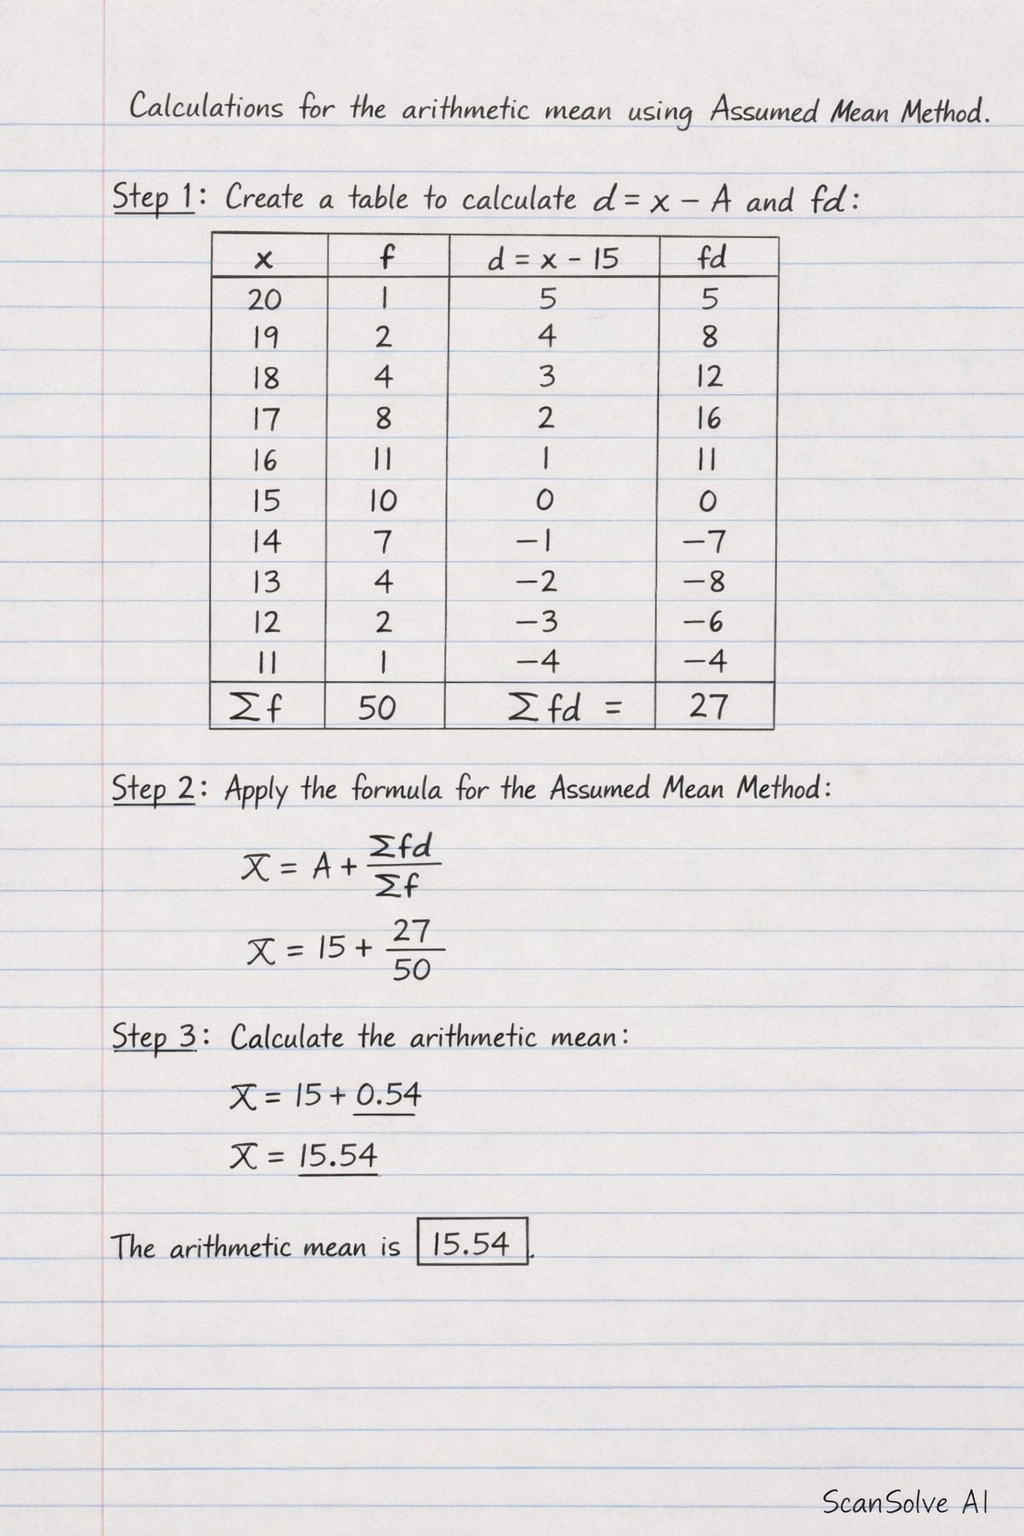 Calculations for the arithmetic mean using Assumed Mean Method.
Step 1: Create a table to calculate d = x − A and fd:
x f d = x - 15 fd
20 1 5 5
19 2 4 8
18 4 3 12
17 8 2 16
16 11 1 11
15 10 0 0
14 7 −1 −7
13 4 −2 −8
12 2 −3 −6
11 1 −4 −4
Σf 50 Σfd = 27
Step 2: Apply the formula for the Assumed Mean Method:
x̄ = A + Σfd/Σf
x̄ = 15 + 27/50
Step 3: Calculate the arithmetic mean:
x̄ = 15 + 0.54
x̄ = 15.54
The arithmetic mean is 15.54.
ScanSolve AI